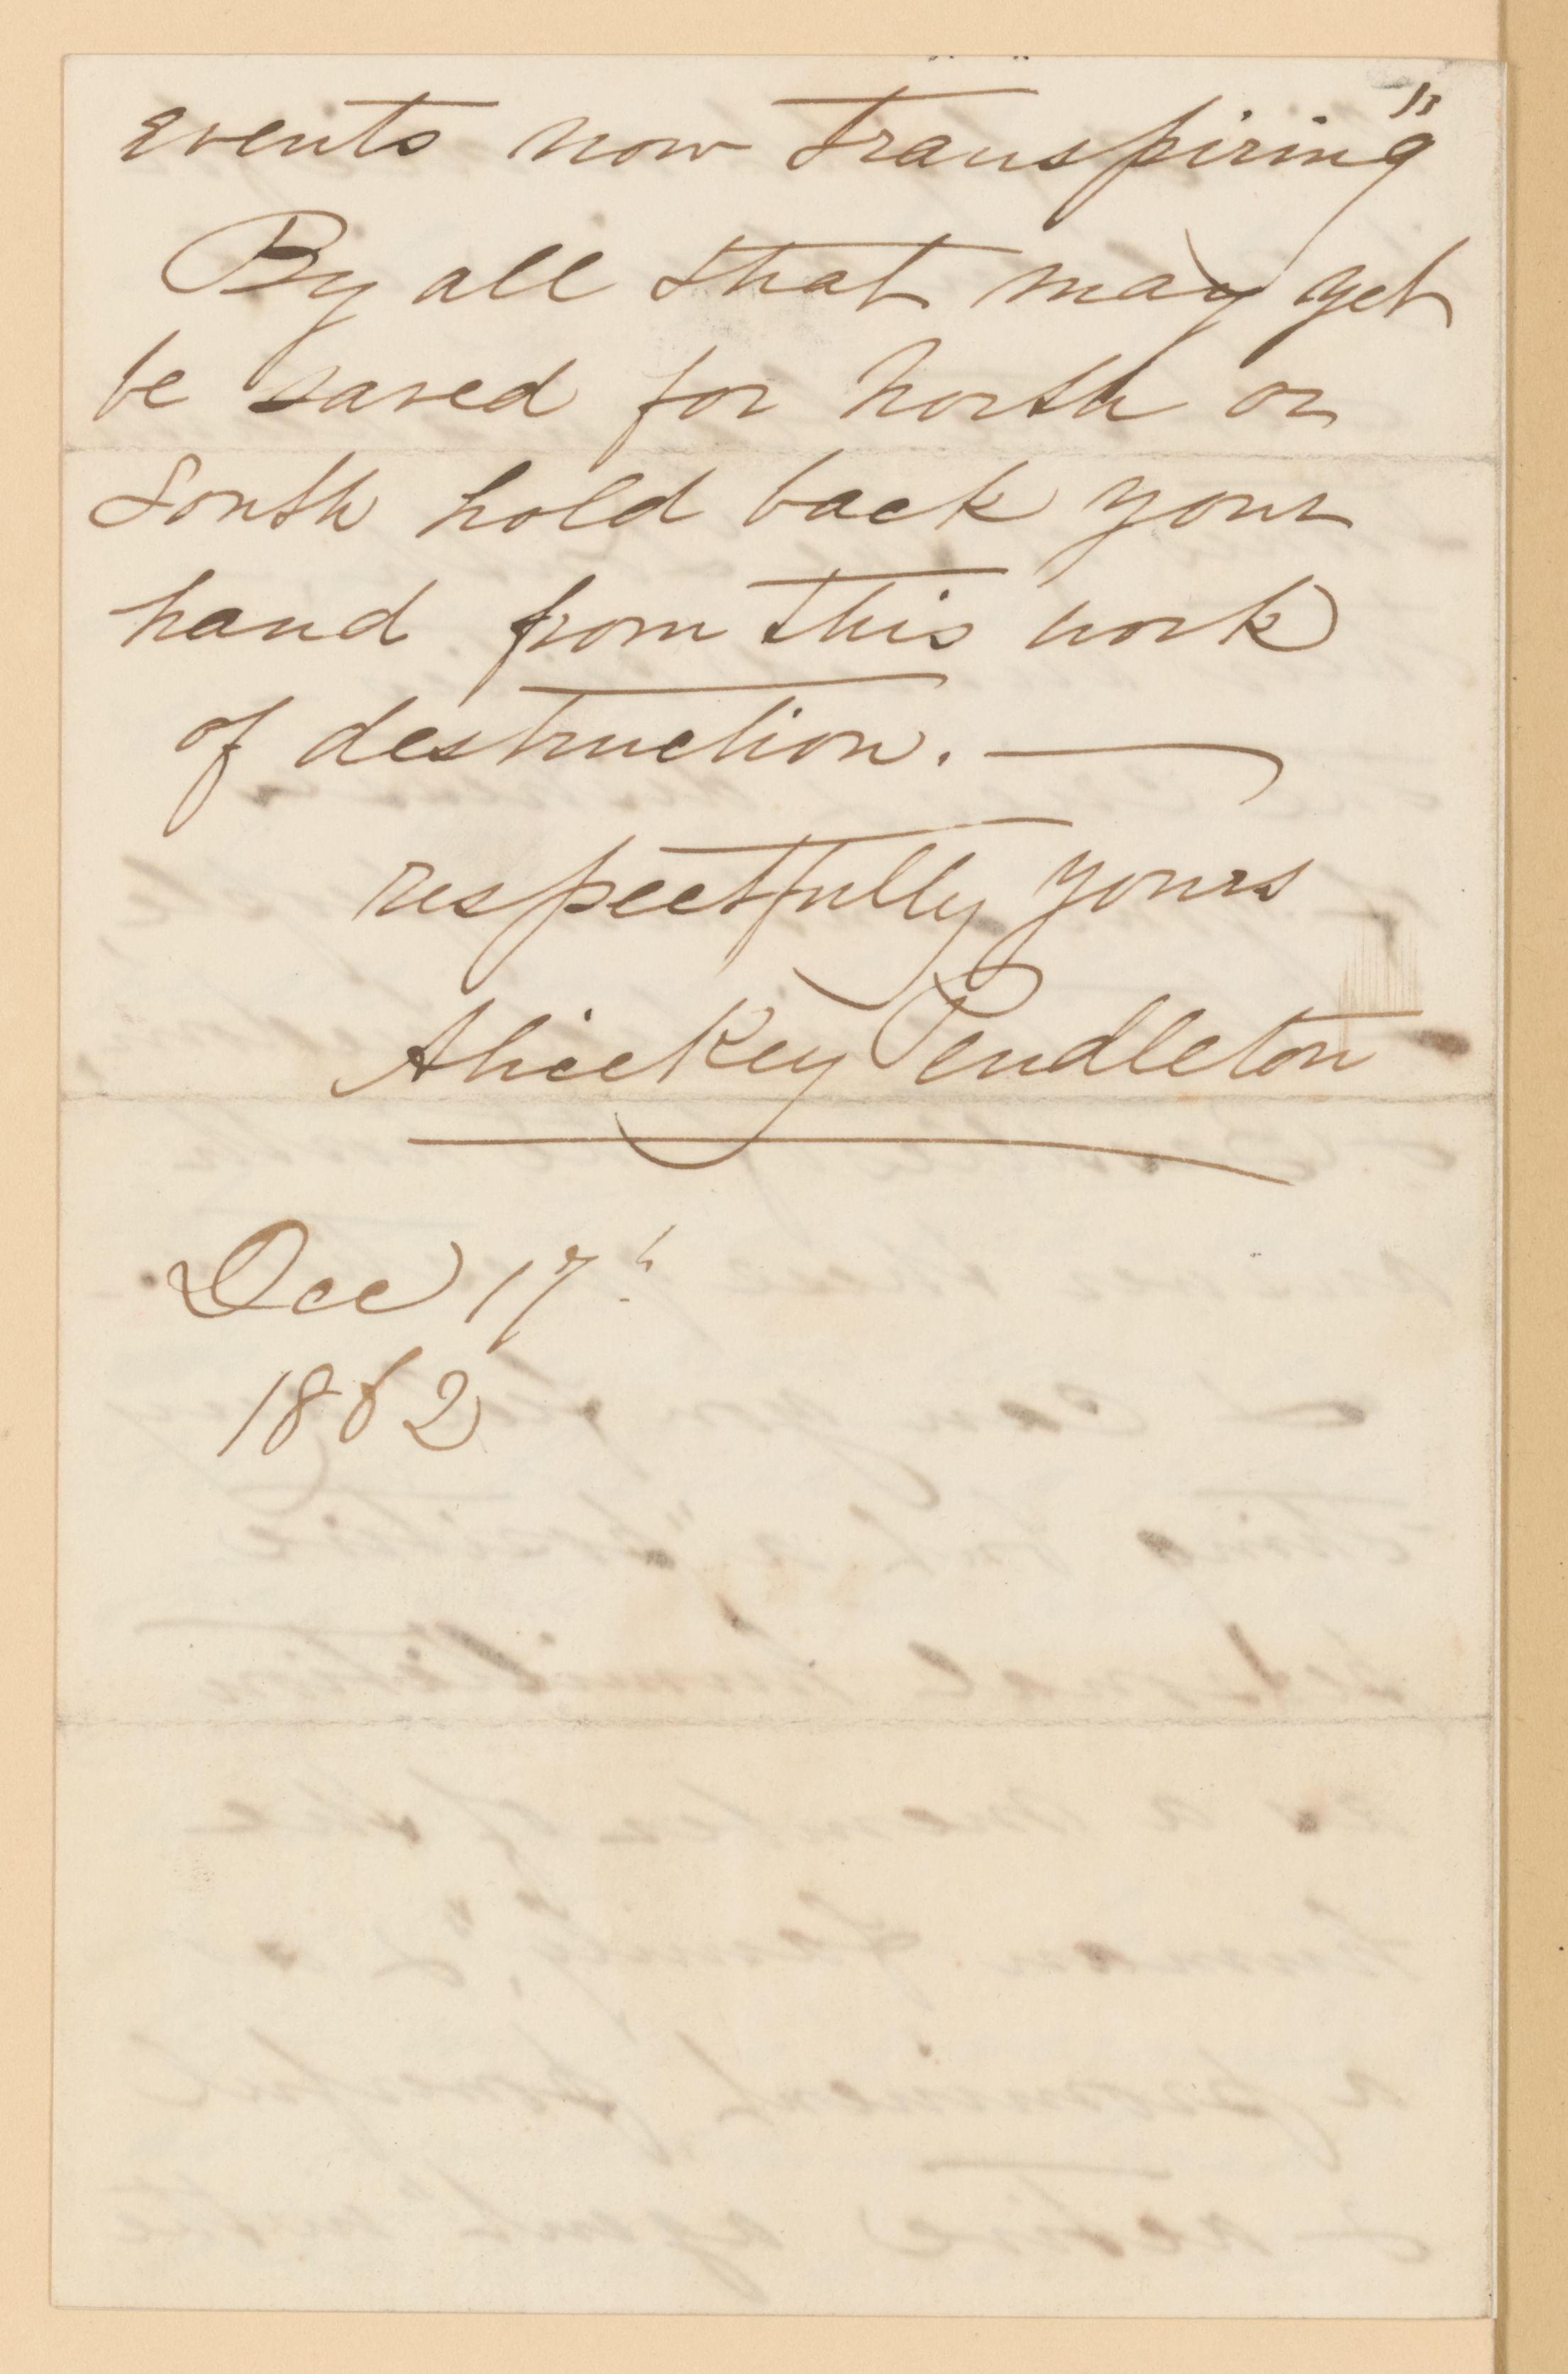 events now transpiring"
By all that may yet
be saved for north or
South hold back your
hand from this work
of destruction. —
respectfully yours
Alice Key Pendleton
Dec 17th
1862